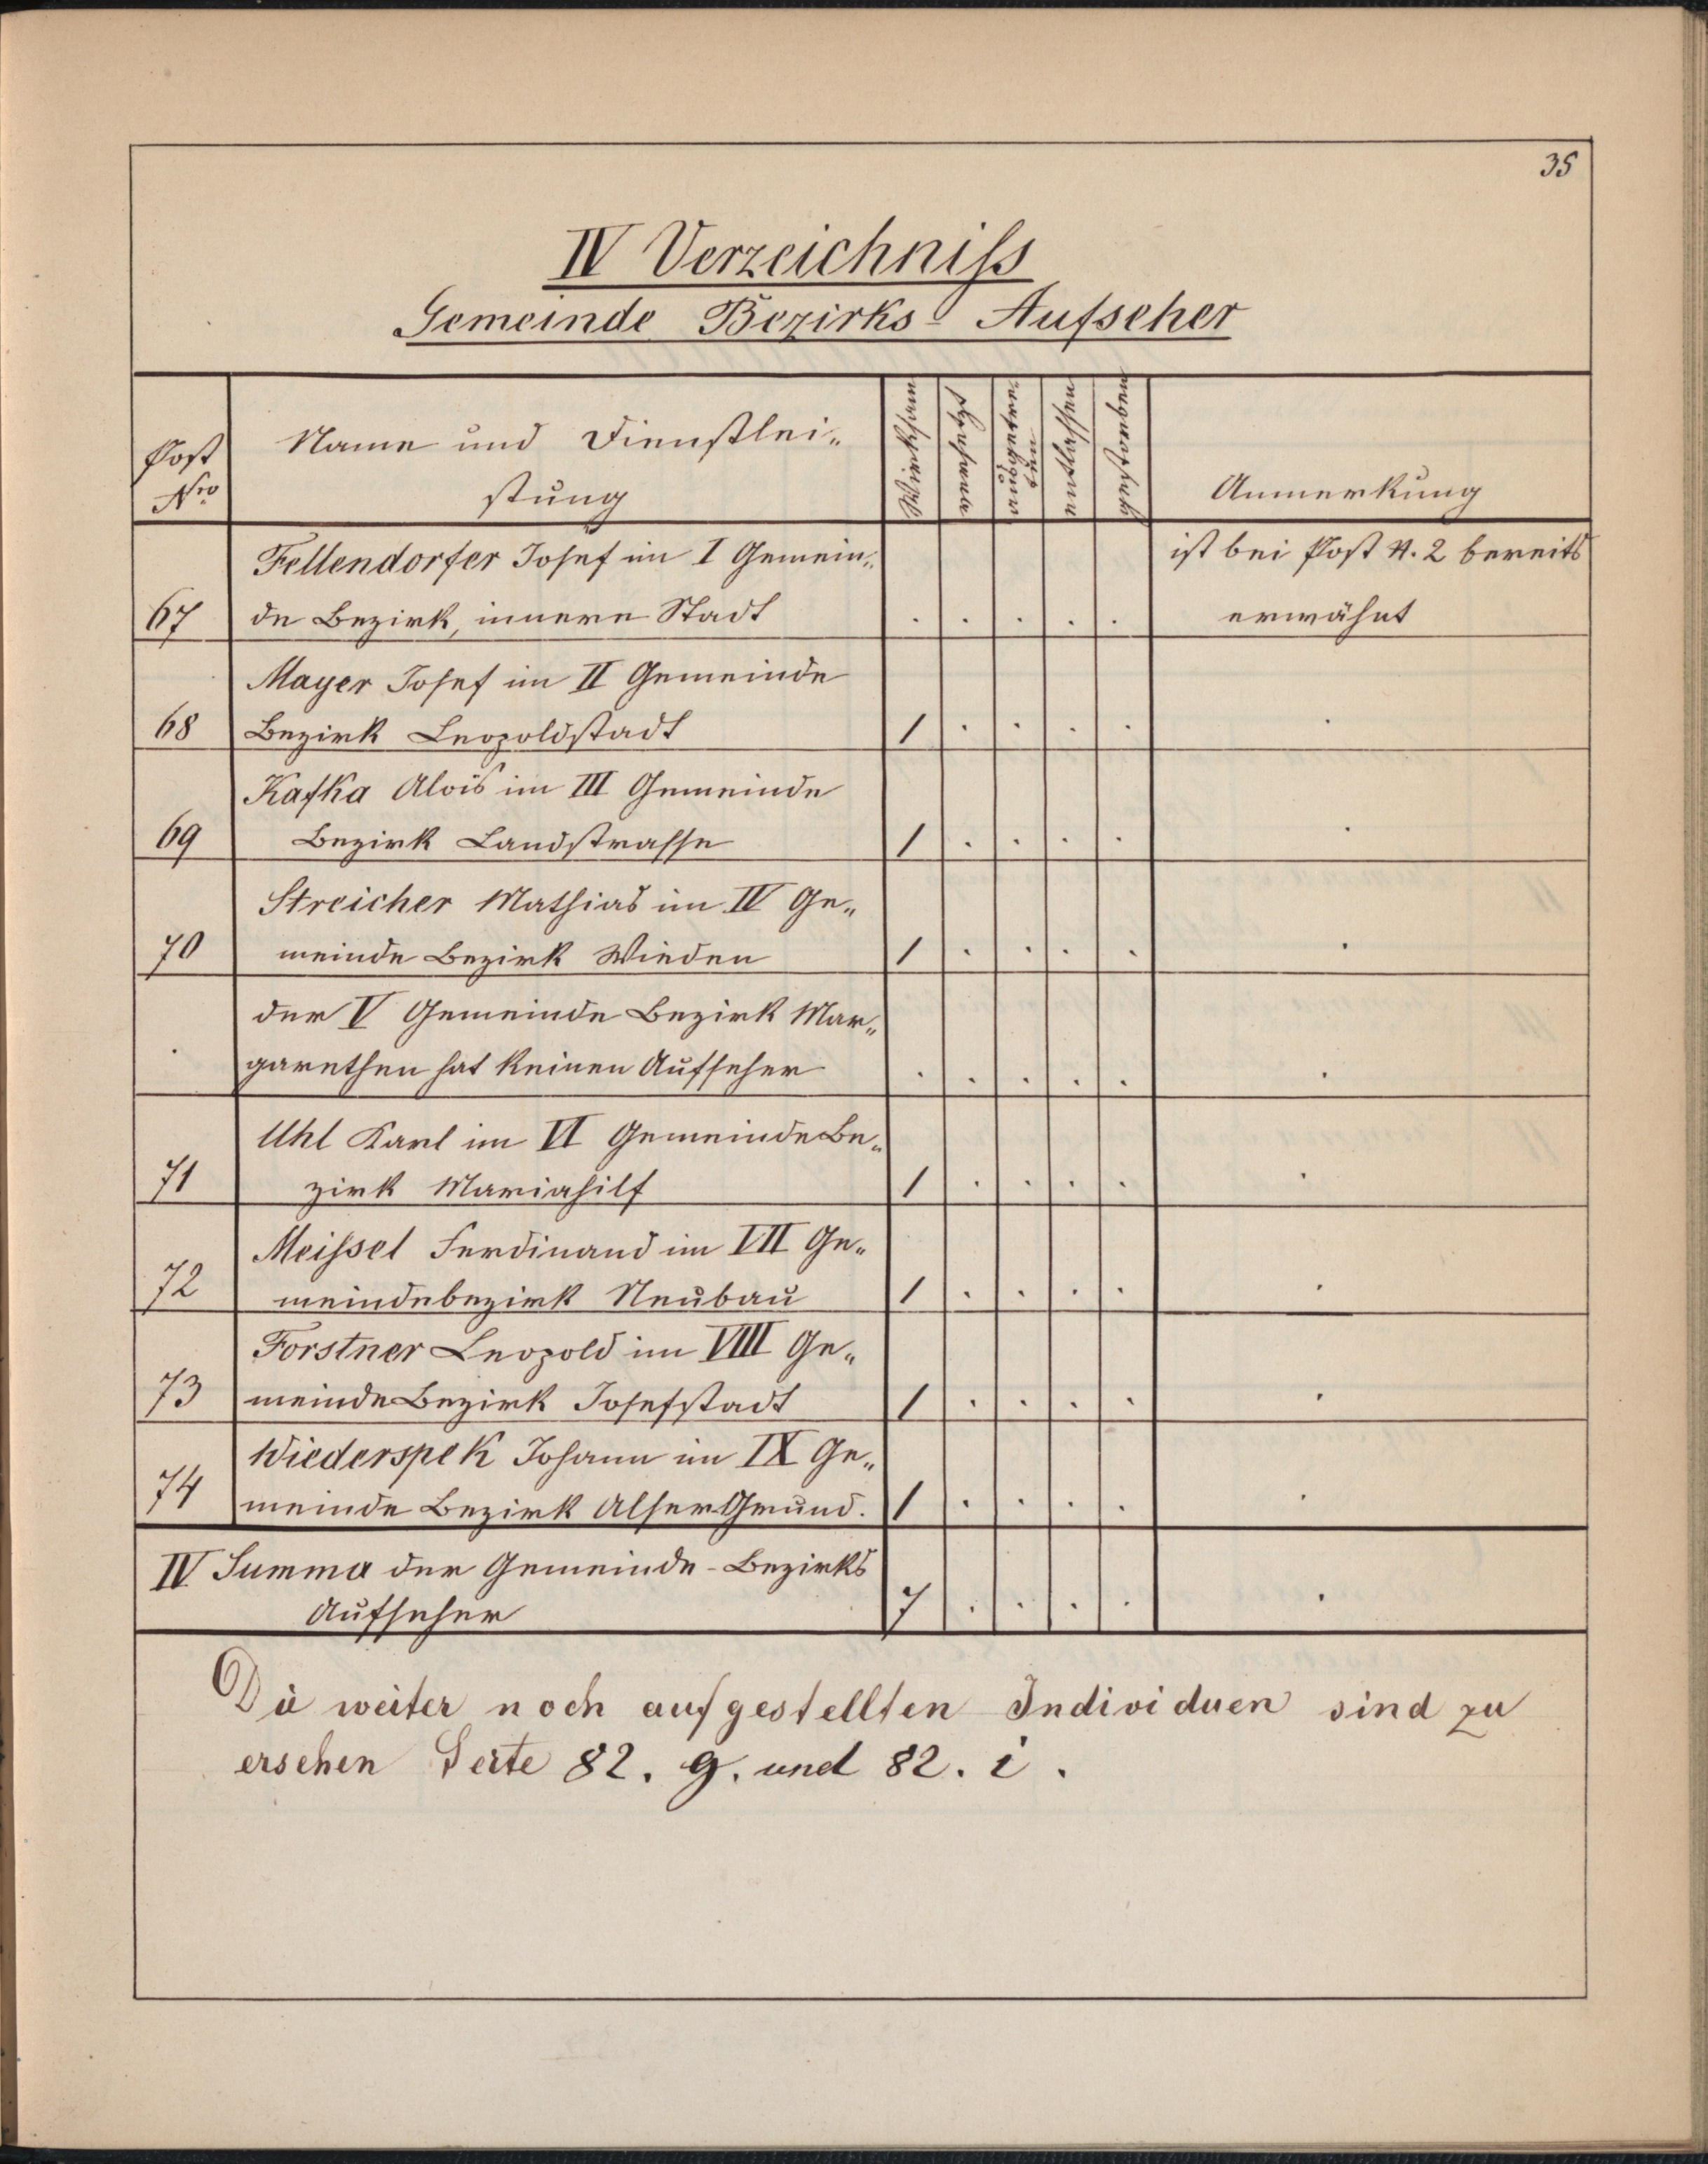 35
IV Verzeichniss
Gemeinde Bezirks-Aufseher
Post
Nro
Name und Dienstlei„
stung
Wirksam
versetzt
ausgetre-
ten
entlassen
gestorben
Anmerkung
Fellendorfer Josef im I Gemein„
ist bei Post N. 2 bereits
67 de Bezirk, innere Stadt . . . . . erwähnt
Mayer Josef im II Gemeinde
68 Bezirk Leopoldstadt 1 . . . . .
Kafka Alois im III Gemeinde
69 Bezirk Landstrasse 1 . . . . .
Streicher Mathias im IV Ge„
70 meinde Bezirk Wieden 1 . . . . .
der V Gemeinde Bezirk Mar„
. garethen hat keinen Aufseher . . . . . .
Uhl Karl im VI Gemeinde Be„
71 zirk Mariahilf 1 . . . . .
Meissel Ferdinand im VII Ge„
72 meindebezirk Neubau 1 . . . . .
Forstner Leopold im VIII Ge„
73 meinde Bezirk Josefstadt 1 . . . . .
Wiederspek Johann im IX Ge„
74 meinde Bezirk Alser Grund. 1 . . . . .
IV Summa der Gemeinde-Bezirks
Aufseher 7 . . . . .
Die weiter noch aufgestellten Individuen sind zu
ersehen Seite 82. g. und 82. i.